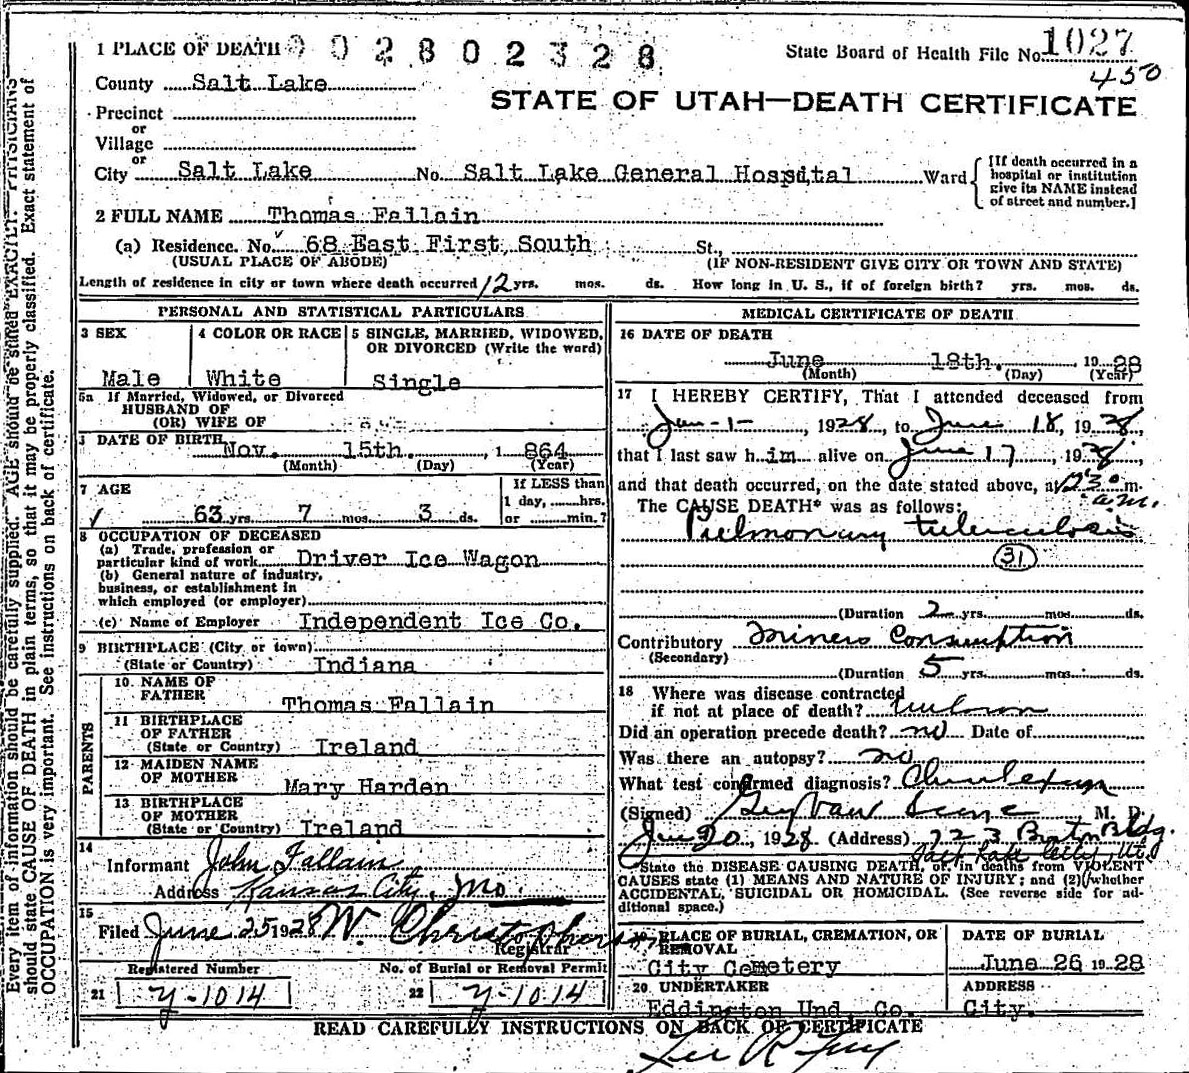 1 PLACE OF DEATH 002802328
State Board of Health File No. 1027
450
County Salt Lake
STATE OF UTAH—DEATH CERTIFICATE
Precinct
or
Village
or
City Salt Lake No. Salt Lake General Hospital Ward
[If death occurred in a hospital or institution give its NAME instead of street and number.]
2 FULL NAME Thomas Fallain
(a) Residence. No. 68 East First South St.,
(USUAL PLACE OF ABODE) (IF NON-RESIDENT GIVE CITY OR TOWN AND STATE)
Length of residence in city or town where death occurred 12 yrs. mos. ds. How long in U. S., if of foreign birth? yrs. mos. ds.
PERSONAL AND STATISTICAL PARTICULARS
3 SEX
Male
4 COLOR OR RACE
White
5 SINGLE, MARRIED, WIDOWED,
OR DIVORCED (Write the word)
Single
5a If Married, Widowed, or Divorced
HUSBAND OF
(OR) WIFE OF
DATE OF BIRTH Nov. 15th. , 1 864
(Month) (Day) (Year)
7 AGE
63 yrs. 7 mos. 3 ds.
If LESS than
1 day, hrs.
or min.?
8 OCCUPATION OF DECEASED
(a) Trade, profession or
particular kind of work Driver Ice Wagon
(b) General nature of industry,
business, or establishment in
which employed (or employer)
(c) Name of Employer Independent Ice Co.
9 BIRTHPLACE (City or town)
(State or Country) Indiana
PARENTS
10 NAME OF
FATHER Thomas Fallain
11 BIRTHPLACE
OF FATHER
(State or Country) Ireland
12 MAIDEN NAME
OF MOTHER Mary Harden
13 BIRTHPLACE
OF MOTHER
(State or Country) Ireland
14
Informant John Fallain
Address Kansas City, Mo.
15
Filed June 25 1928 W. Christopherson
Registrar
Registered Number No. of Burial or Removal Permit
21 y-1014 22 y-1014
MEDICAL CERTIFICATE OF DEATH
16 DATE OF DEATH
June 18th. 19 28
(Month) (Day) (Year)
17 I HEREBY CERTIFY, That I attended deceased from
Jan-1- , 1928, to June 18, 1928,
that I last saw him alive on June 17, 1928,
and that death occurred, on the date stated above, at 1230 m.
a.m.
The CAUSE DEATH* was as follows:
Pulmonary tuberculosis
31
(Duration 2 yrs. mos. ds.
Contributory Miners Consumption
(Secondary)
(Duration 5 yrs. mos. ds.
18 Where was disease contracted
if not at place of death? unknown
Did an operation precede death? no Date of
Was there an autopsy? no
What test confirmed diagnosis?
(Signed) M. D.
Jun 20, 1928 (Address) 723 Bldg.
Salt Lake City Ut.
State the DISEASE CAUSING DEATH, or, in deaths from VIOLENT
CAUSES state (1) MEANS AND NATURE OF INJURY; and (2) whether
ACCIDENTAL, SUICIDAL OR HOMICIDAL. (See reverse side for ad-
ditional space.)
19 PLACE OF BURIAL, CREMATION, OR
REMOVAL
City Cemetery
DATE OF BURIAL
June 26 1928
20 UNDERTAKER
Eddington Und. Co.
ADDRESS
City.
READ CAREFULLY INSTRUCTIONS ON BACK OF CERTIFICATE
Every item of information should be carefully supplied. AGE should be stated EXACTLY. PHYSICIANS
should state CAUSE OF DEATH in plain terms, so that it may be properly classified. Exact statement of
OCCUPATION is very important. See instructions on back of certificate.